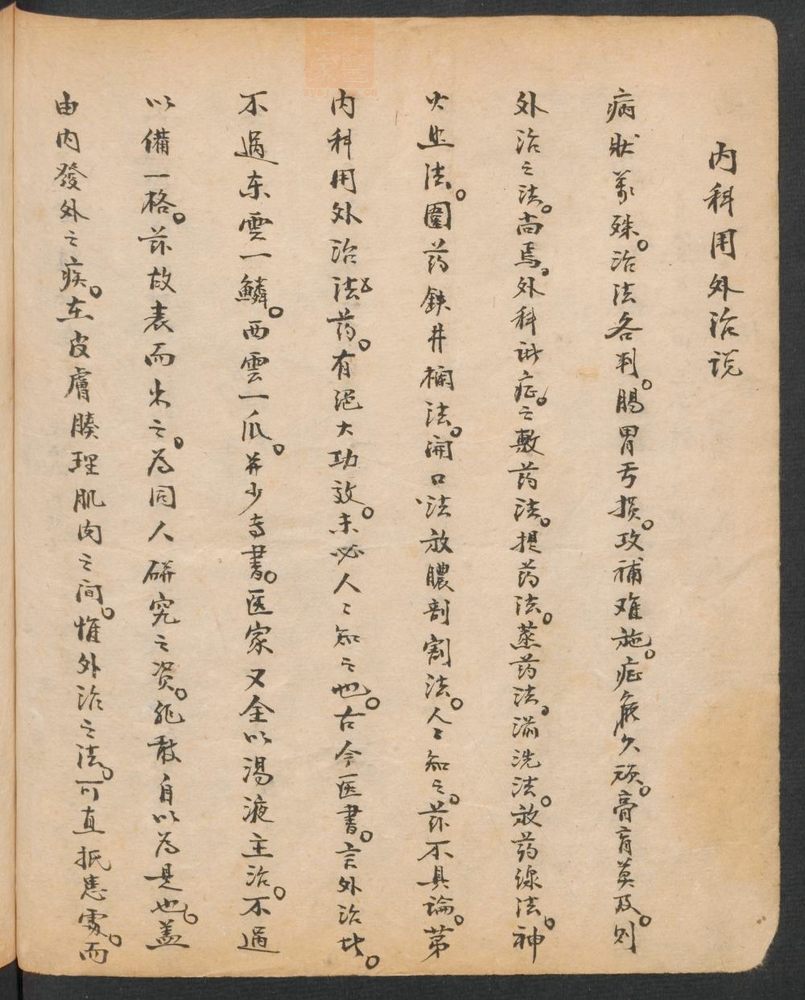 内科用外治说
病狀萬殊。治法各判。腸胃亏損。攻補难施。症癥久顽。膏肓莫及。则
外治之法。尚焉。外科诸症。之敷药法。提药法。蒸药法。溻洗法。放药線法。神
火照法。圍药鉄井欄法。開口法放膿剖割法。人〻知之。茲不具論。第
内科用外治法药。有絕大功效。未必人〻知之也。古今医書。言外治者。
不過东雲一鳞。西雲一爪。并少专書。医家又全以湯液主治。不過
以備一格。茲故表而出之。为同人研究之资。非敢自以为是也。盖
由内發外之疾。在皮膚腠理肌肉之间。惟外治之法。可直抵患處。而